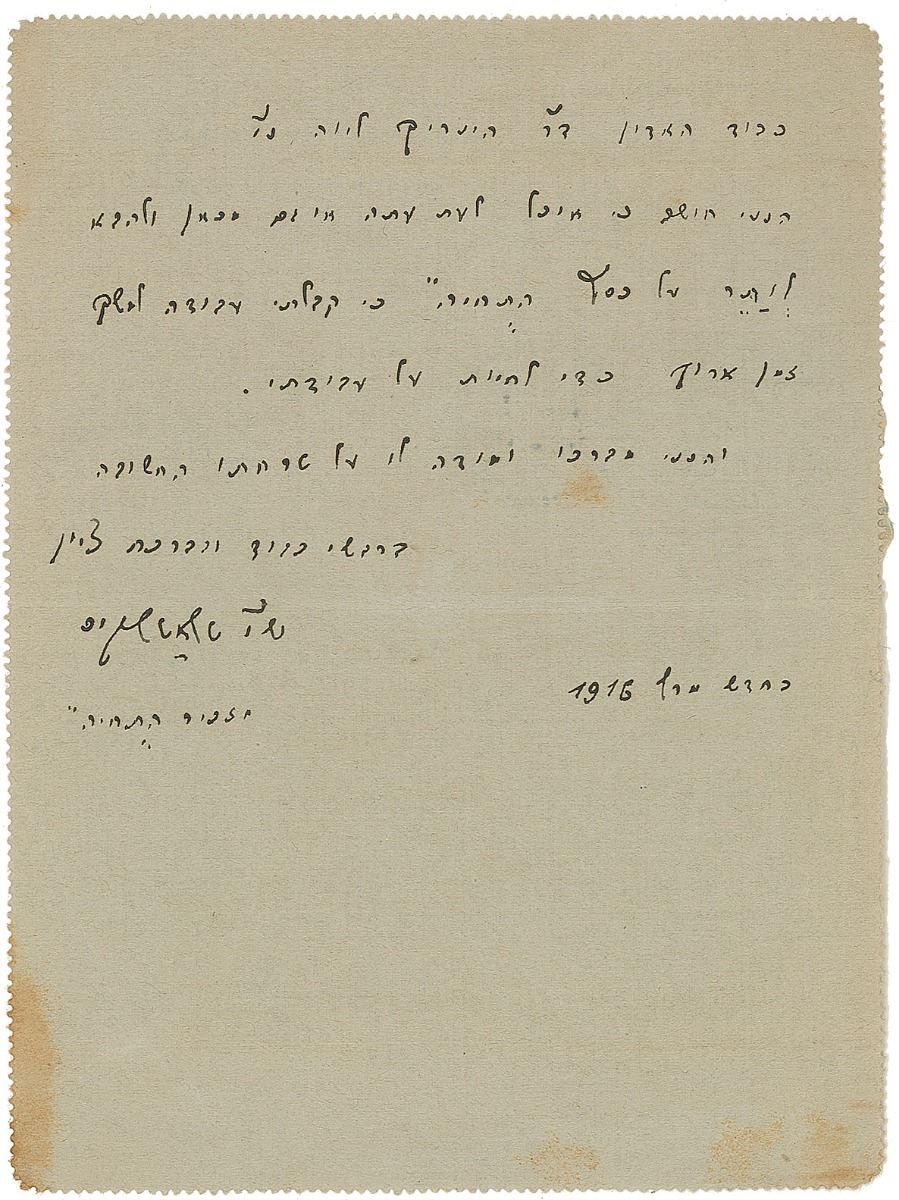 כבוד האדון ד״ר הינריק ליוה נ״י
הנני חושב כי אוכל לעת עתה או גם מכאן ולהבא
לְוַתֵּר על כסף הַתְּחִיָּה״ כי קבלתי עבודה למשך
זמן ארוך כדי לחיות על עבודתי.
והנני מברכו ומודה לו על טרחתו החשובה
ברגשי כבוד וברכת ציון
ש״י
בחדש מרץ 1916
מזכיר הַתְּחִיָּה״